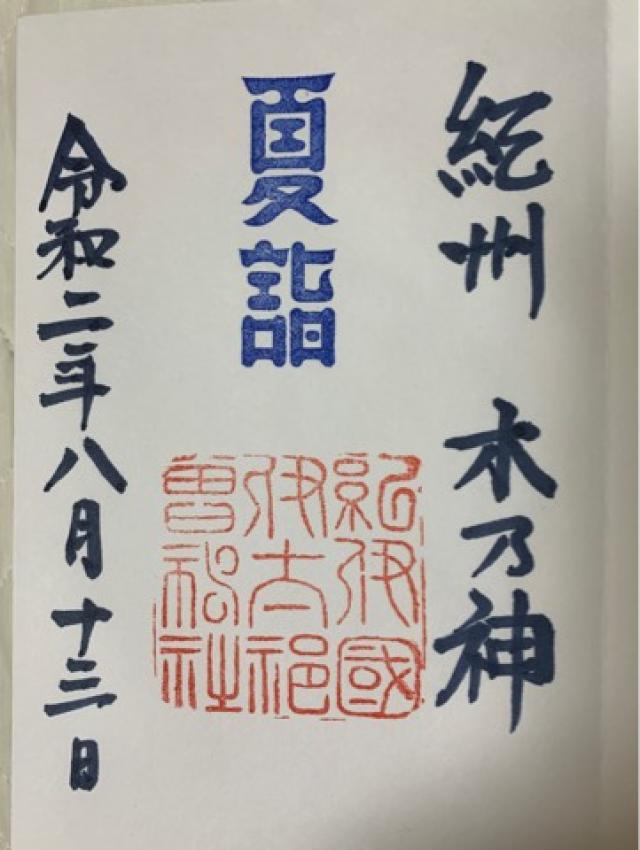 紀州 木乃神
夏詣
紀伊國
伊太祁
曽神社
令和二年八月十三日